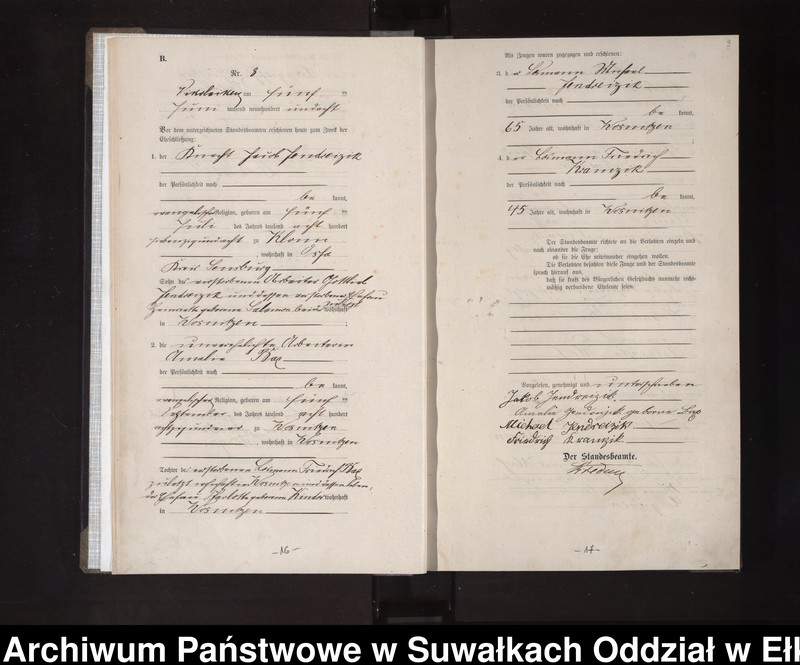 B.
Nr. 8
am fünf
Juni tausend neunhundert undacht
Vor dem unterzeichneten Standesbeamten erschienen heute zum Zweck der
Eheschließung:
1. der Knecht Jakob Jendreizik
der Persönlichkeit nach
be kannt,
evangelischer Religion, geboren am fünf
Juli des Jahres tausend acht hundert
zu Klonn
, wohnhaft in
Kreis Sensburg
Sohn des verstorbenen Arbeiter Gottlieb
Jendreizik und dessen verstorbenen Ehefrau
geborene wohnhaft
in Kosmitzen
2. die unverehelichte Arbeiterin
Amalie
der Persönlichkeit nach
be kannt,
evangelischer Religion, geboren am fünf
September des Jahres tausend acht hundert
zu Kosmitzen
, wohnhaft in Kosmitzen
Tochter des verstorbenen Losmann Friedrich
zuletzt wohnhaft in Kosmitzen und dessen
Ehefrau Charlotte geborene wohnhaft
in Kosmitzen
— 16 —
Als Zeugen waren zugezogen und erschienen:
3. der Losmann Michael
Jendreizik
der Persönlichkeit nach
be kannt,
65 Jahre alt, wohnhaft in Kosmitzen
4. der Losmann Friedrich
Kramzik
der Persönlichkeit nach
be kannt,
45 Jahre alt, wohnhaft in Kosmitzen
Der Standesbeamte richtete an die Verlobten einzeln und
nach einander die Frage:
ob sie die Ehe miteinander eingehen wollen.
Die Verlobten bejahten diese Frage und der Standesbeamte
sprach hierauf aus,
daß sie kraft des Bürgerlichen Gesetzbuchs nunmehr recht-
mäßig verbundene Eheleute seien.
Vorgelesen, genehmigt und unterschrieben
Jakob Jendreizik
Amalie Jendreizik geborene
Michael Jendreizik
Friedrich Kramzik
Der Standesbeamte.
— 17 —
Archiwum Państwowe w Suwałkach Oddział w Ełk